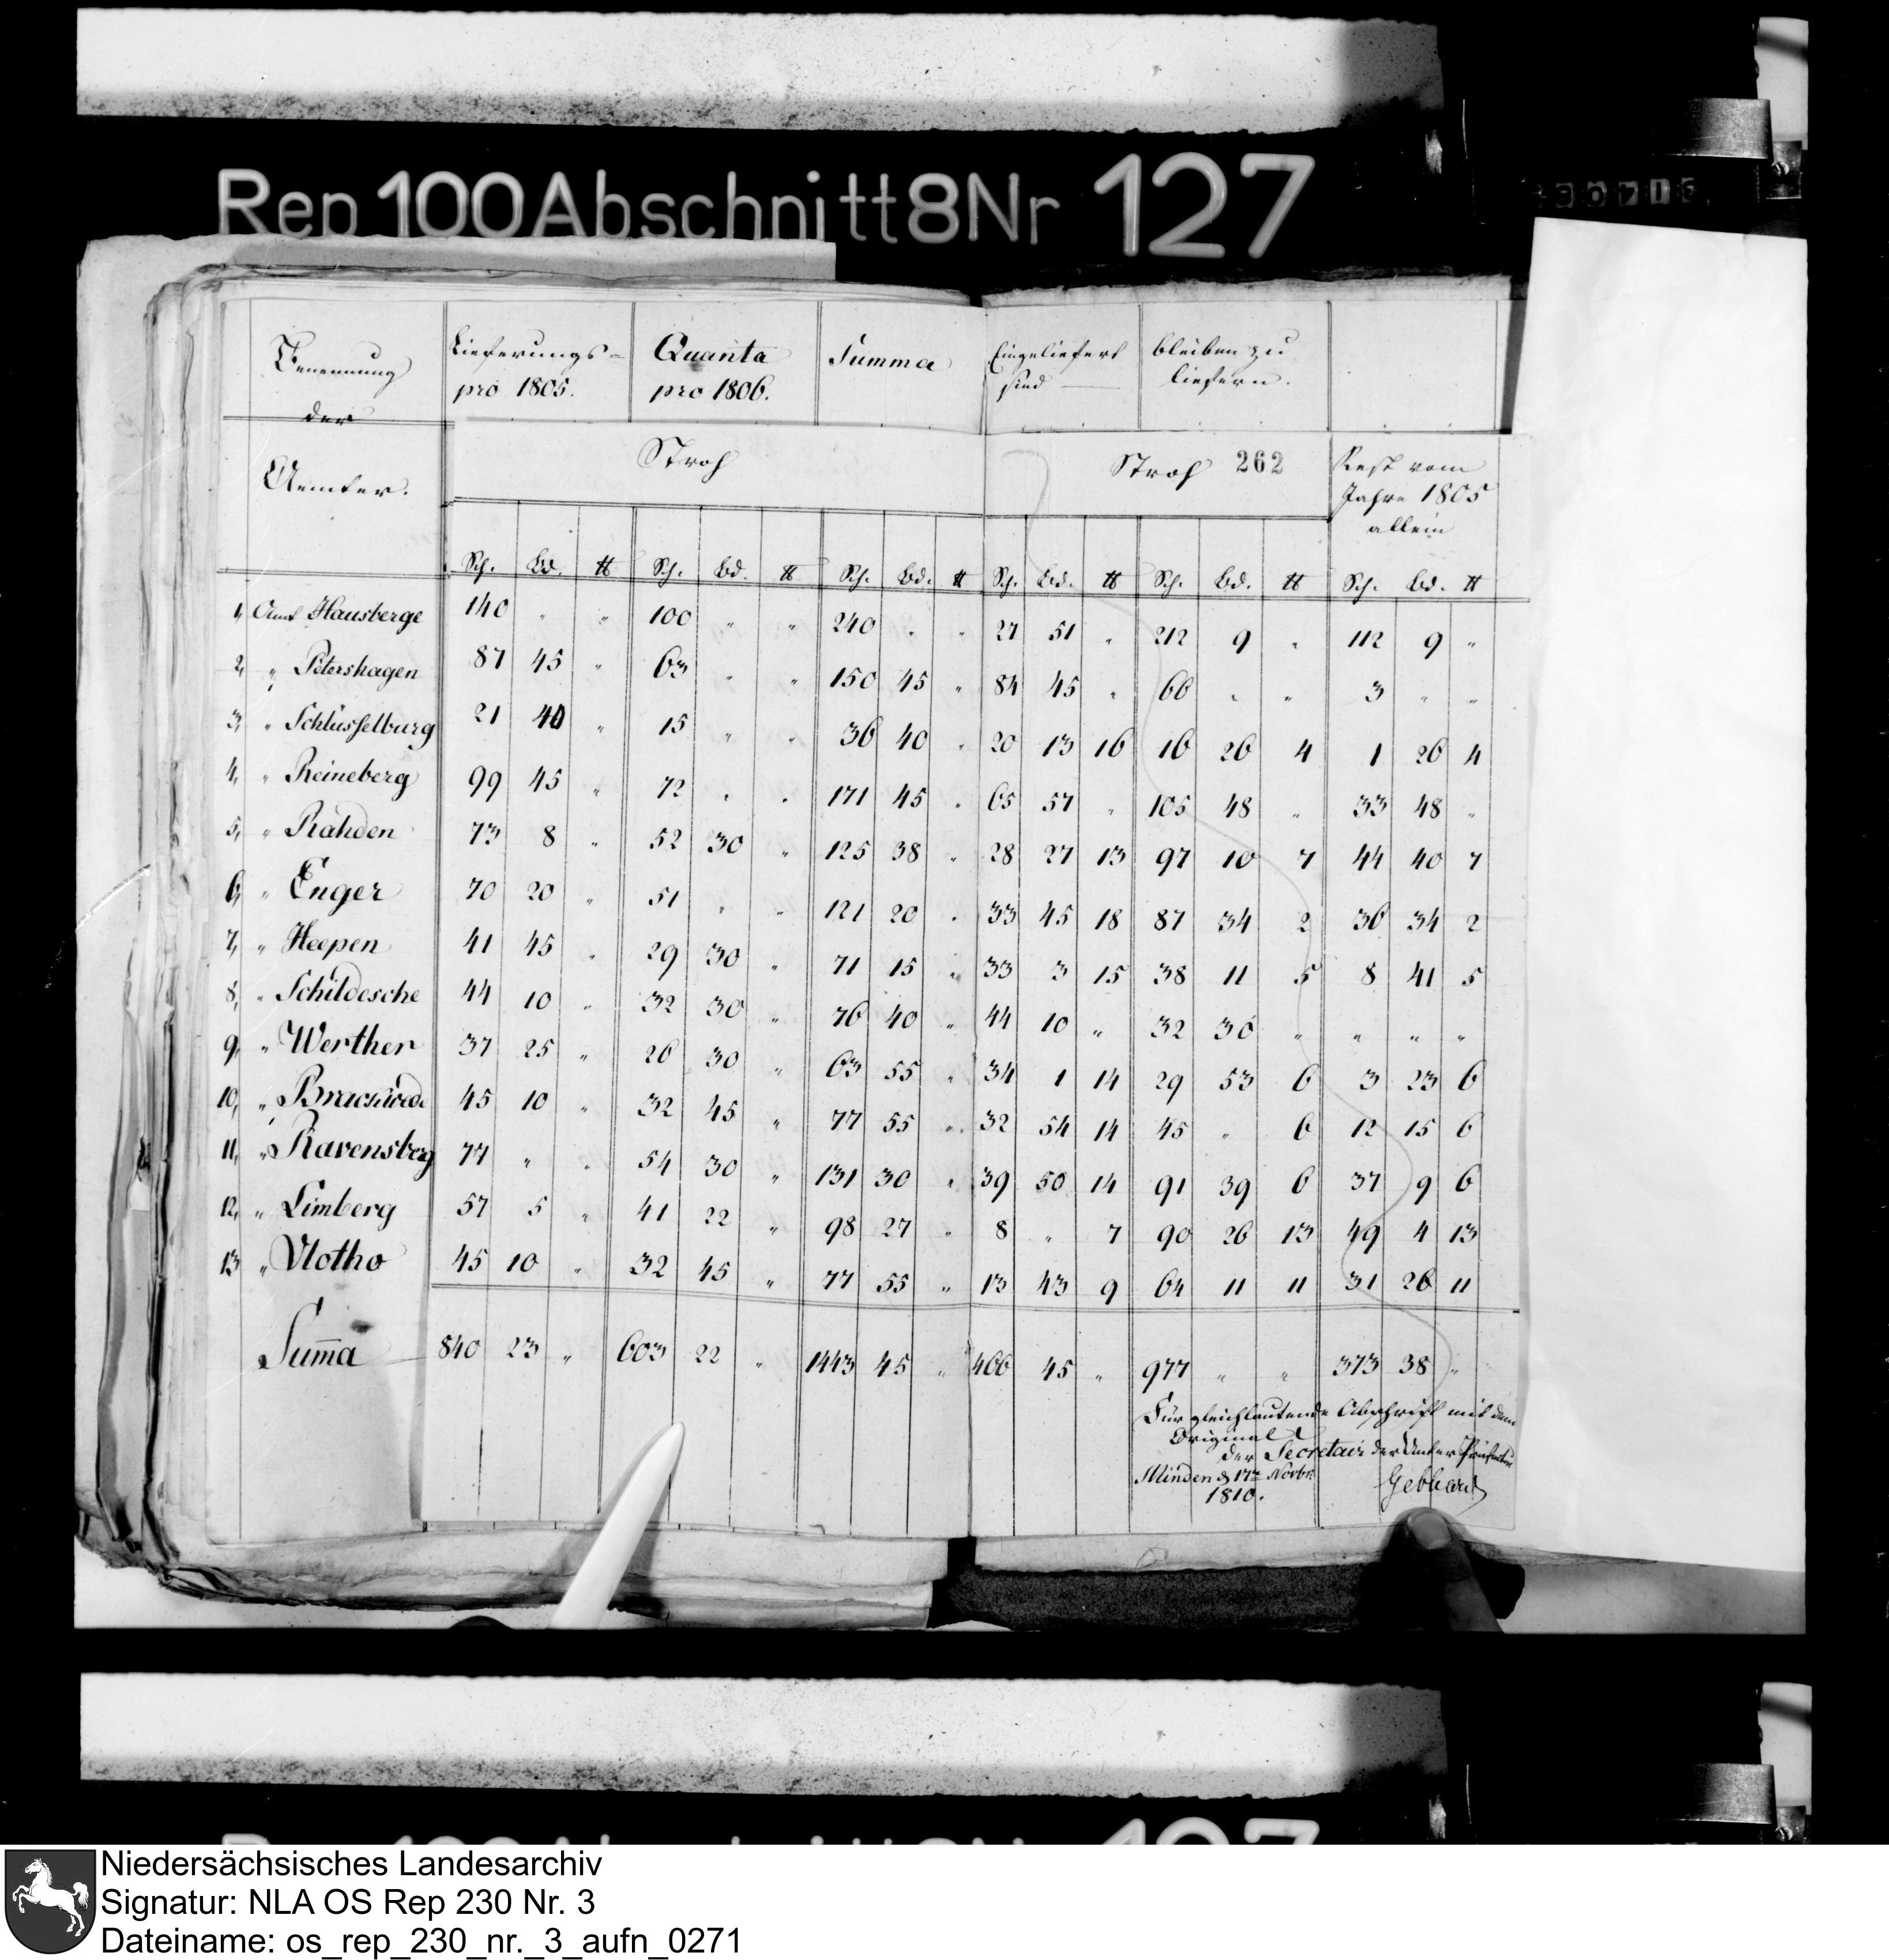 Rep 100 Abschnitt 8 Nr 127
Benennung der Aemter. | Lieferungs- pro 1805. | Quanta pro 1806. | Summa | Eingeliefert sind | bleiben zu liefern.
Stroh | Stroh 262 | Rest vom Jahre 1805 allein
Sch. Bd. ℔ | Sch. Bd. ℔ | Sch. Bd. ℔ | Sch. Bd. ℔ | Sch. Bd. ℔ | Sch. Bd. ℔
1, Amt Hausberge 140 " " 100 " " 240 " " 27 51 " 212 9 " 112 9 "
2, " Petershagen 87 45 " 63 " " 150 45 " 84 45 " 66 " " 3 " "
3, " Schlüsselburg 21 40 " 15 " " 36 40 " 20 13 16 16 26 4 1 26 4
4, " Reineberg 99 45 " 72 " " 171 45 " 65 57 " 105 48 " 33 48 "
5, " Rahden 73 8 " 52 30 " 125 38 " 28 27 13 97 10 7 44 40 7
6, " Enger 70 20 " 51 " " 121 20 " 33 45 18 87 34 2 36 34 2
7, " Heepen 41 45 " 29 30 " 71 15 " 33 3 15 38 11 5 8 41 5
8, " Schildesche 44 10 " 32 30 " 76 40 " 44 10 " 32 30 " " " "
9, " Werther 37 25 " 26 30 " 63 55 " 34 1 14 29 53 6 3 23 6
10, " 45 10 " 32 45 " 77 55 " 32 54 14 45 " 6 12 15 6
11, " Ravensberg 77 " " 54 30 " 131 30 " 39 50 14 91 39 6 37 9 6
12, " Limberg 57 5 " 41 22 " 98 27 " 8 " 7 90 26 13 49 4 13
13 " Vlotho 45 10 " 32 45 " 77 55 " 13 43 9 64 11 11 31 26 11
Summa 840 23 " 603 22 " 1443 45 " 466 45 " 977 " " 373 38 "
Für gleichlautende Abschrift mit dem
Original
der Secretair der Unter Präfectur
Minden d 17n Novbr.
1810.
Gebhard
Niedersächsisches Landesarchiv
Signatur: NLA OS Rep 230 Nr. 3
Dateiname: os_rep_230_nr._3_aufn_0271